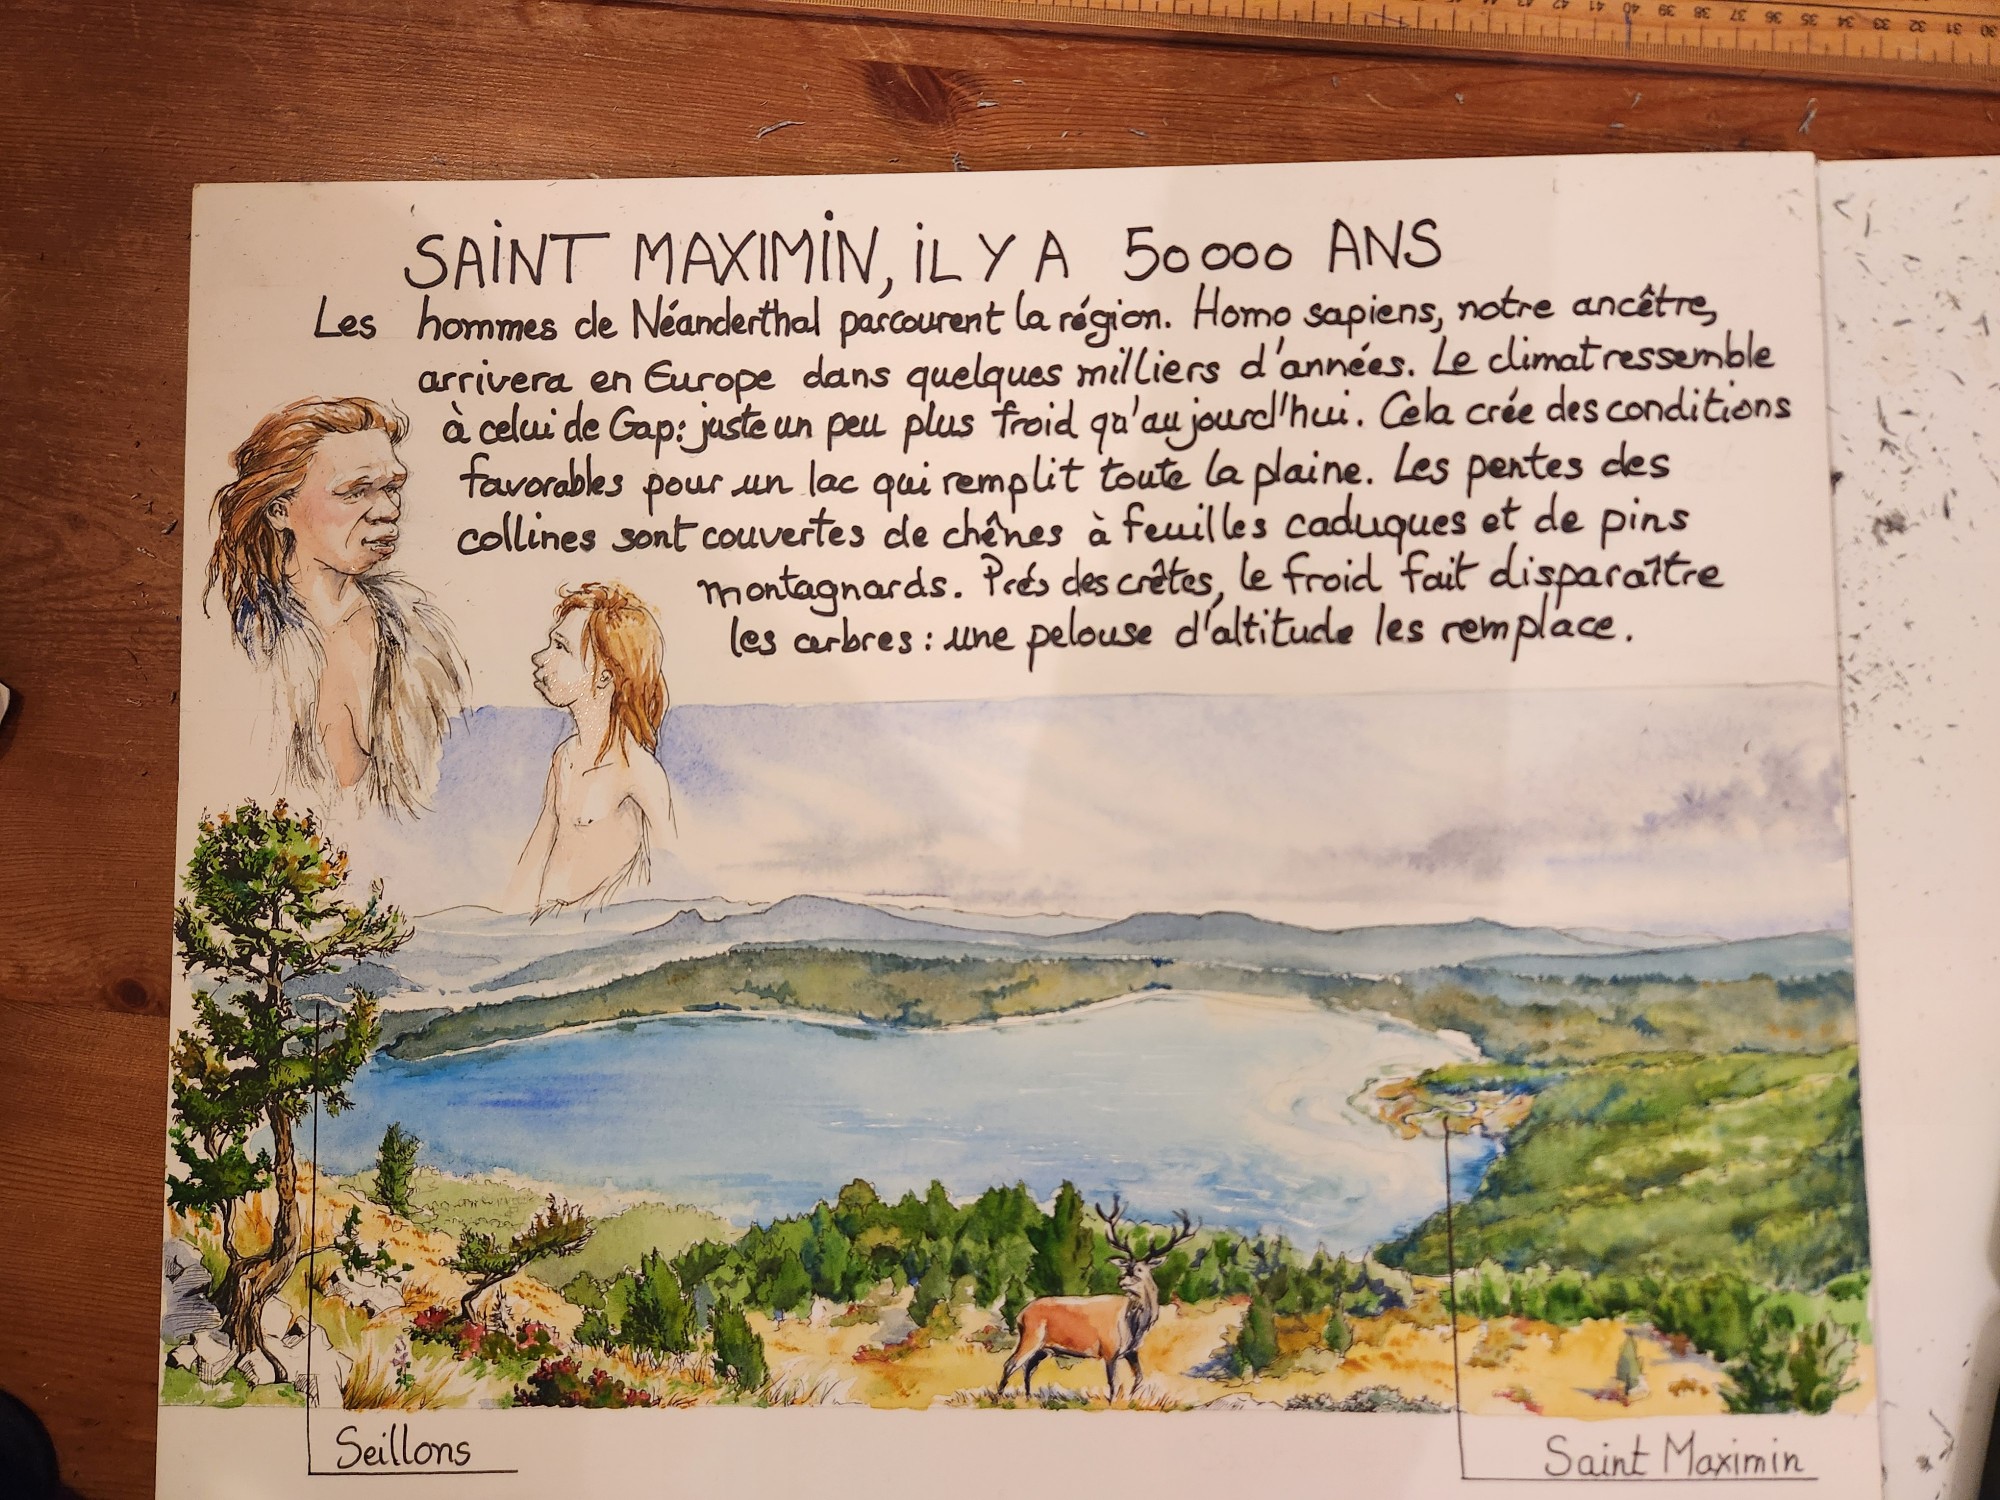 SAINT MAXIMIN, IL Y A 50000 ANS
Les hommes de Néanderthal parcourent la région. Homo sapiens, notre ancêtre,
arrivera en Europe dans quelques milliers d'années. Le climat ressemble
à celui de Gap: juste un peu plus froid qu'aujourd'hui. Cela crée des conditions
favorables pour un lac qui remplit toute la plaine. Les pentes des
collines sont couvertes de chênes à feuilles caduques et de pins
montagnards. Prés des crêtes, le froid fait disparaître
les arbres : une pelouse d'altitude les remplace.
Seillons
Saint Maximin